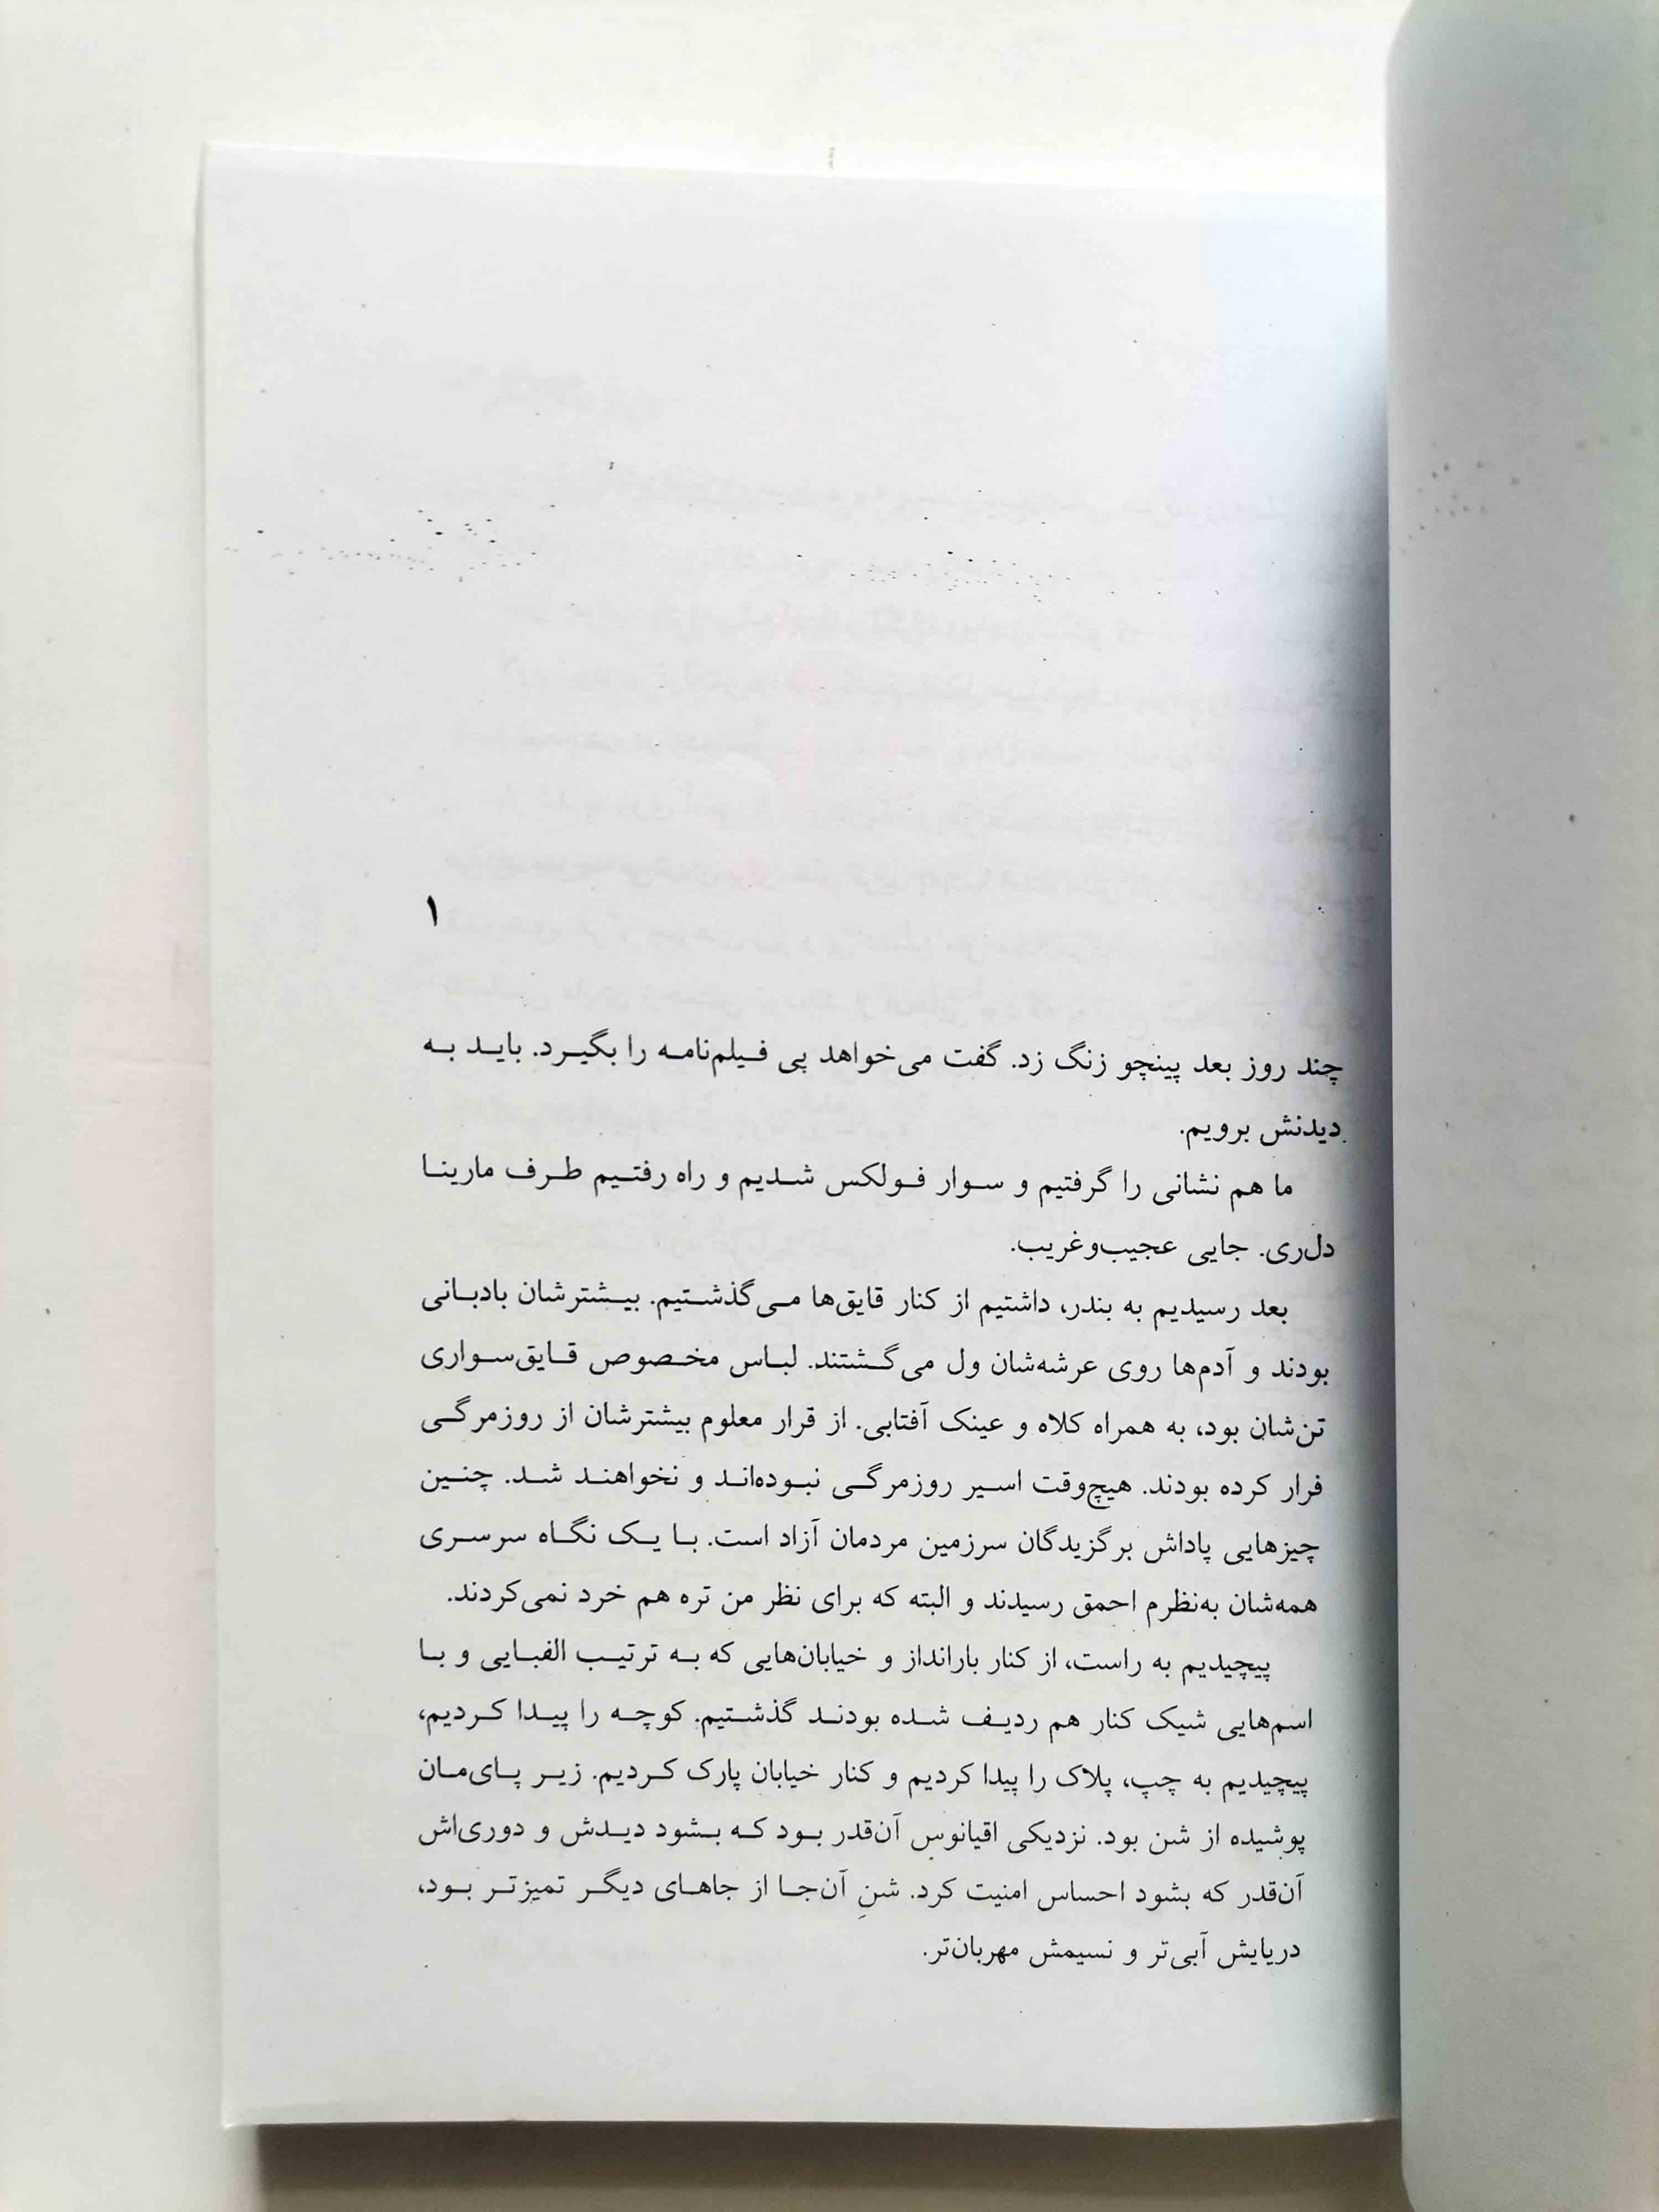 ۱
چند روز بعد پینچو زنگ زد. گفت می‌خواهد پی فیلم‌نامه را بگیرد. باید به
دیدنش برویم.
ما هم نشانی را گرفتیم و سوار فولکس شدیم و راه رفتیم طرف مارینا
دل‌ری. جایی عجیب‌وغریب.
بعد رسیدیم به بندر، داشتیم از کنار قایق‌ها می‌گذشتیم. بیشترشان بادبانی
بودند و آدم‌ها روی عرشه‌شان ول می‌گشتند. لباس مخصوص قایق‌سواری
تن‌شان بود، به همراه کلاه و عینک آفتابی. از قرار معلوم بیشترشان از روزمرگی
فرار کرده بودند. هیچ‌وقت اسیر روزمرگی نبوده‌اند و نخواهند شد. چنین
چیزهایی پاداش برگزیدگان سرزمین مردمان آزاد است. با یک نگاه سرسری
همه‌شان به‌نظرم احمق رسیدند و البته که برای نظر من تره هم خرد نمی‌کردند.
پیچیدیم به راست، از کنار بارانداز و خیابان‌هایی که به ترتیب الفبایی و با
اسم‌هایی شیک کنار هم ردیف شده بودند گذشتیم. کوچه را پیدا کردیم،
پیچیدیم به چپ، پلاک را پیدا کردیم و کنار خیابان پارک کردیم. زیر پای‌مان
پوشیده از شن بود. نزدیکی اقیانوس آن‌قدر بود که بشود دیدش و دوری‌اش
آن‌قدر که بشود احساس امنیت کرد. شنِ آن‌جا از جاهای دیگر تمیزتر بود،
دریایش آبی‌تر و نسیمش مهربان‌تر.